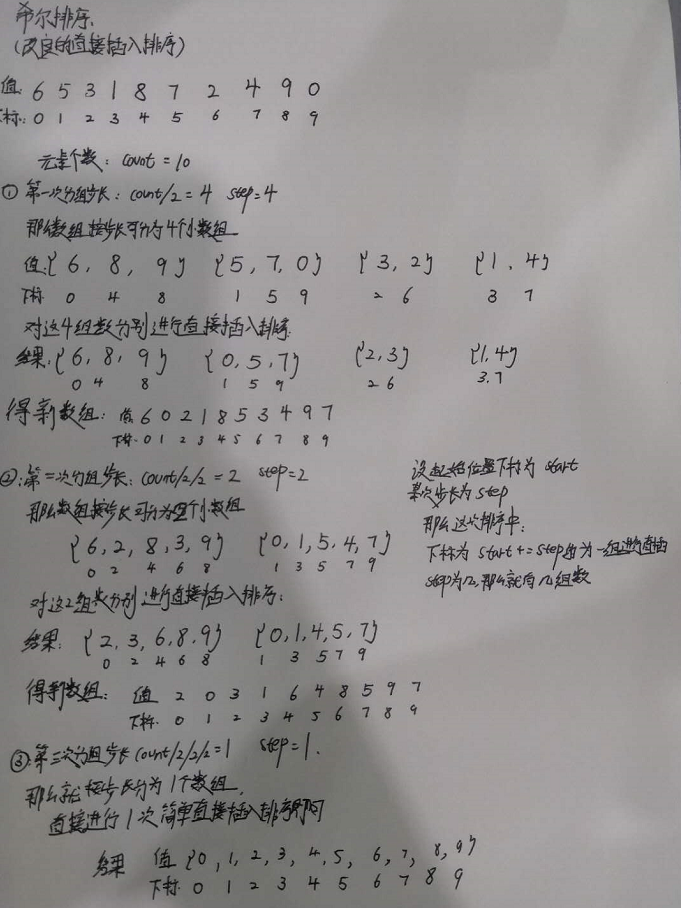 希尔排序.
(改良的直接插入排序)
值: 6 5 3 1 8 7 2 4 9 0
下标: 0 1 2 3 4 5 6 7 8 9
元素个数: count = 10
① 第一次分组步长: count/2 = 4 step=4
那么数组按步长可分为4个小数组
值:{6, 8, 9} {5, 7, 0} {3, 2} {1, 4}
下标 0 4 8 1 5 9 2 6 3 7
对这4组数分别进行直接插入排序:
结果:{6, 8, 9} {0, 5, 7} {2, 3} {1, 4}
0 4 8 1 5 9 2 6 3.7
得新数组: 值 6 0 2 1 8 5 3 4 9 7
下标: 0 1 2 3 4 5 6 7 8 9
②:第二次分组步长: count/2/2 = 2 step=2
那么数组按步长可分为2个小数组
{6, 2, 8, 3, 9} {0, 1, 5, 4, 7}
0 2 4 6 8 1 3 5 7 9
对这2组数分别进行直接插入排序:
结果: {2, 3, 6, 8, 9} {0, 1, 4, 5, 7}
0 2 4 6 8 1 3 5 7 9
得新数组: 值 2 0 3 1 6 4 8 5 9 7
下标: 0 1 2 3 4 5 6 7 8 9
设起始位置下标为 start
某次步长为 step
那么这次排序中:
下标为 start += step的为一组进行直插
step为n,那么就有n组数
③:第三次分组步长 count/2/2/2 = 1 step=1.
那么就按步长分为1个数组,
直接进行1次简单直接插入排序即可
结果 值 {0, 1, 2, 3, 4, 5, 6, 7, 8, 9}
下标: 0 1 2 3 4 5 6 7 8 9